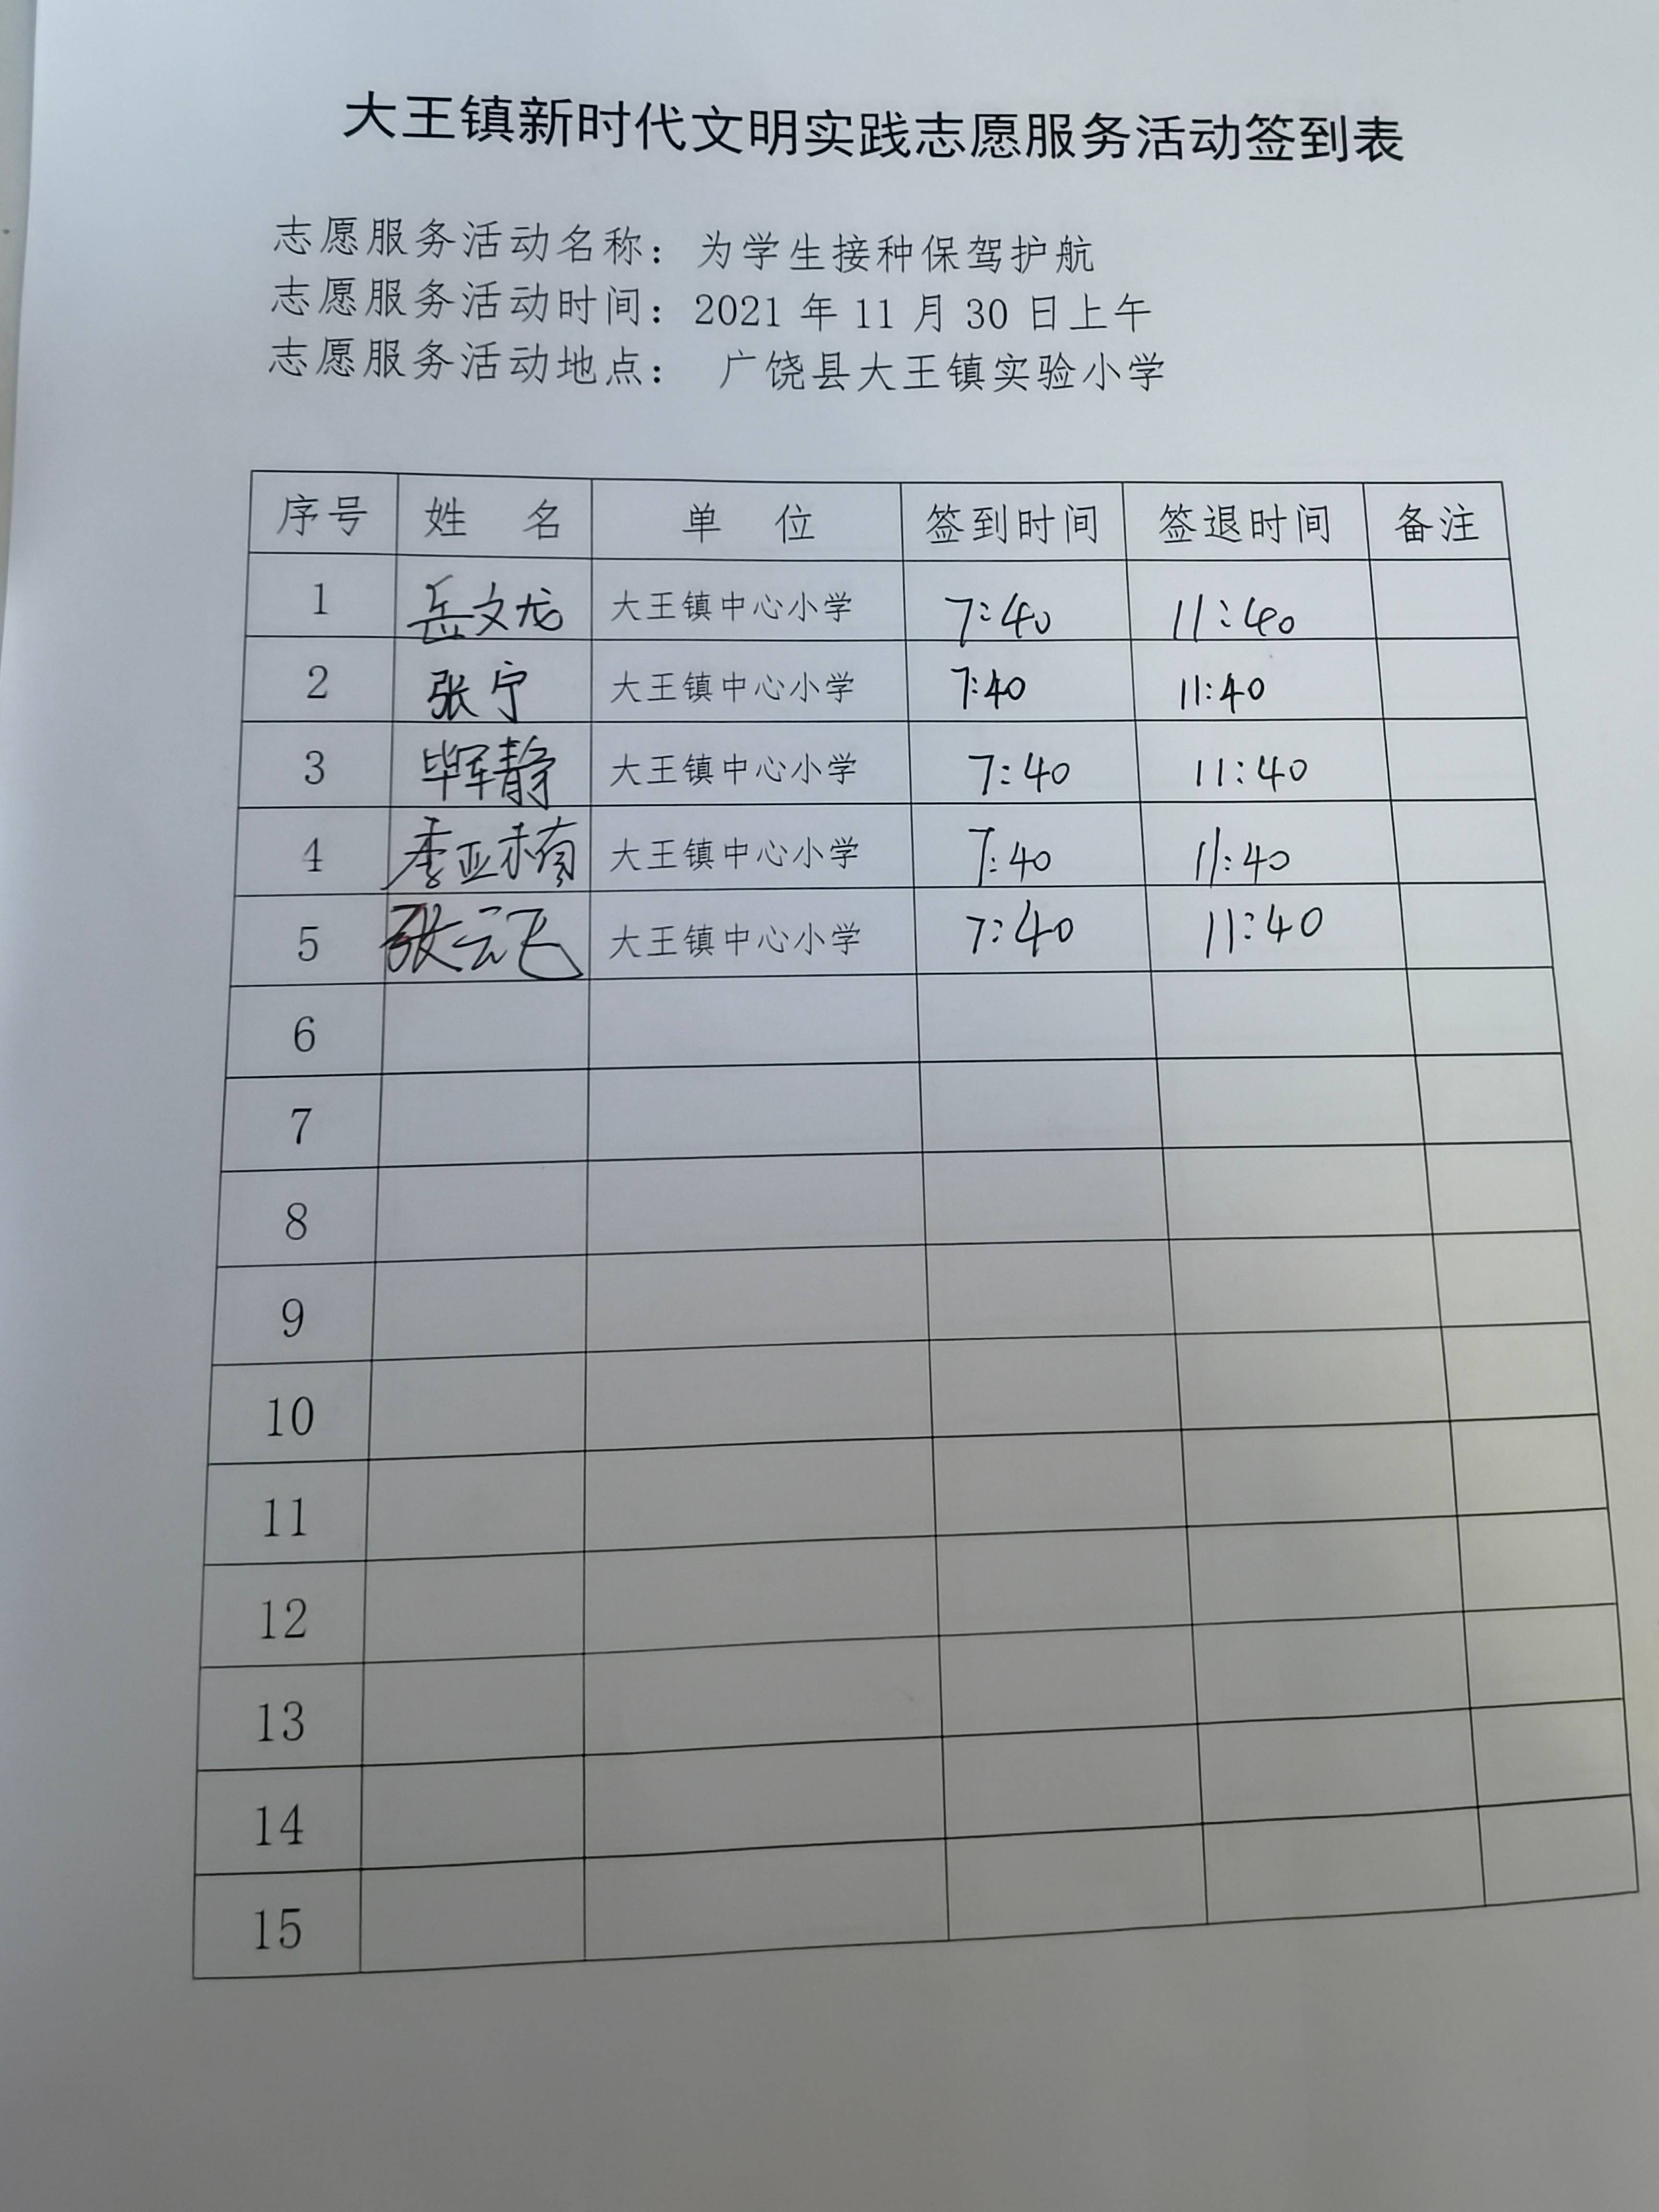 大王镇新时代文明实践志愿服务活动签到表
志愿服务活动名称：为学生接种保驾护航
志愿服务活动时间：2021年11月30日上午
志愿服务活动地点： 广饶县大王镇实验小学
序号 姓 名 单 位 签到时间 签退时间 备注
1 岳文龙 大王镇中心小学 7:40 11:40
2 张宁 大王镇中心小学 7:40 11:40
3 毕军静 大王镇中心小学 7:40 11:40
4 李亚楠 大王镇中心小学 7:40 11:40
5 张云飞 大王镇中心小学 7:40 11:40
6
7
8
9
10
11
12
13
14
15